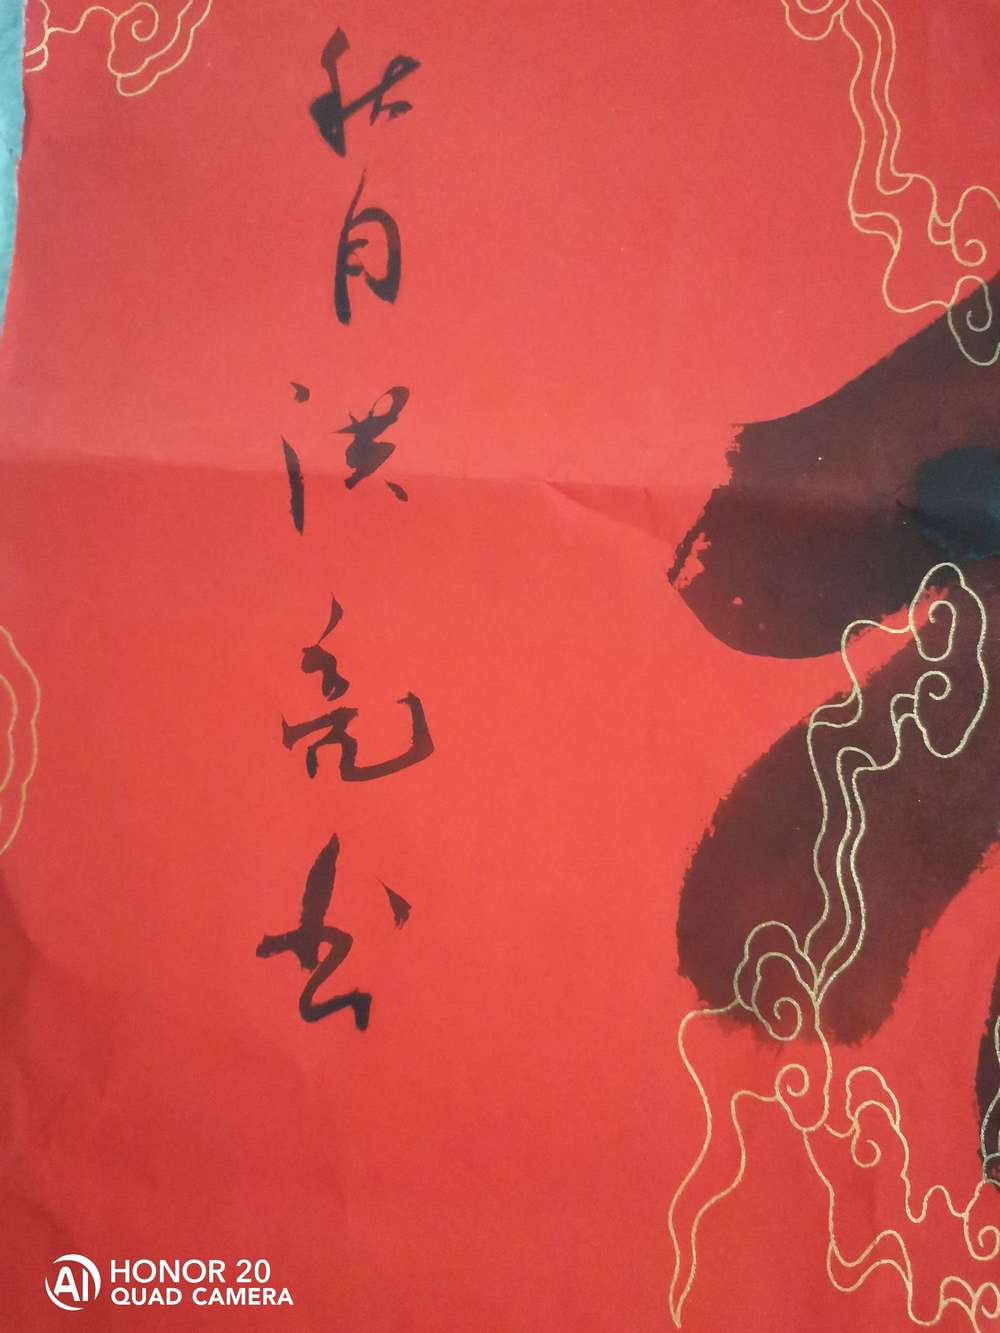 秋月洪亮书
HONOR 20
QUAD CAMERA
AI